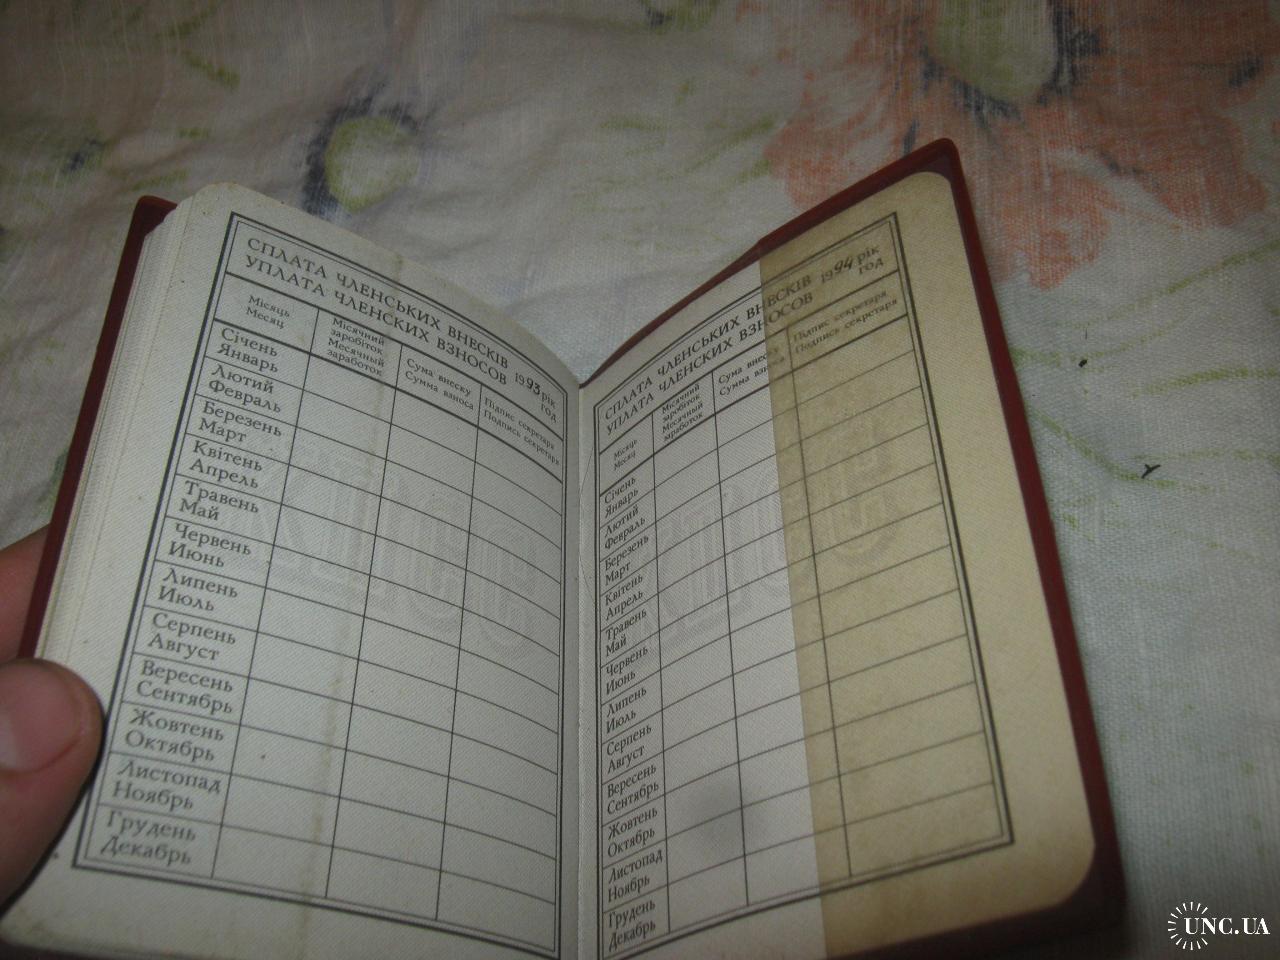 СПЛАТА ЧЛЕНСЬКИХ ВНЕСКІВ 1993 рік
УПЛАТА ЧЛЕНСКИХ ВЗНОСОВ год
Місяць
Месяц
Місячний
заробіток
Месячный
заработок
Сума внеску
Сумма взноса
Підпис секретаря
Подпись секретаря
Січень
Январь
Лютий
Февраль
Березень
Март
Квітень
Апрель
Травень
Май
Червень
Июнь
Липень
Июль
Серпень
Август
Вересень
Сентябрь
Жовтень
Октябрь
Листопад
Ноябрь
Грудень
Декабрь
СПЛАТА ЧЛЕНСЬКИХ ВНЕСКІВ 1994 рік
УПЛАТА ЧЛЕНСКИХ ВЗНОСОВ год
Місяць
Месяц
Місячний
заробіток
Месячный
заработок
Сума внеску
Сумма взноса
Підпис секретаря
Подпись секретаря
Січень
Январь
Лютий
Февраль
Березень
Март
Квітень
Апрель
Травень
Май
Червень
Июнь
Липень
Июль
Серпень
Август
Вересень
Сентябрь
Жовтень
Октябрь
Листопад
Ноябрь
Грудень
Декабрь
UNC.UA